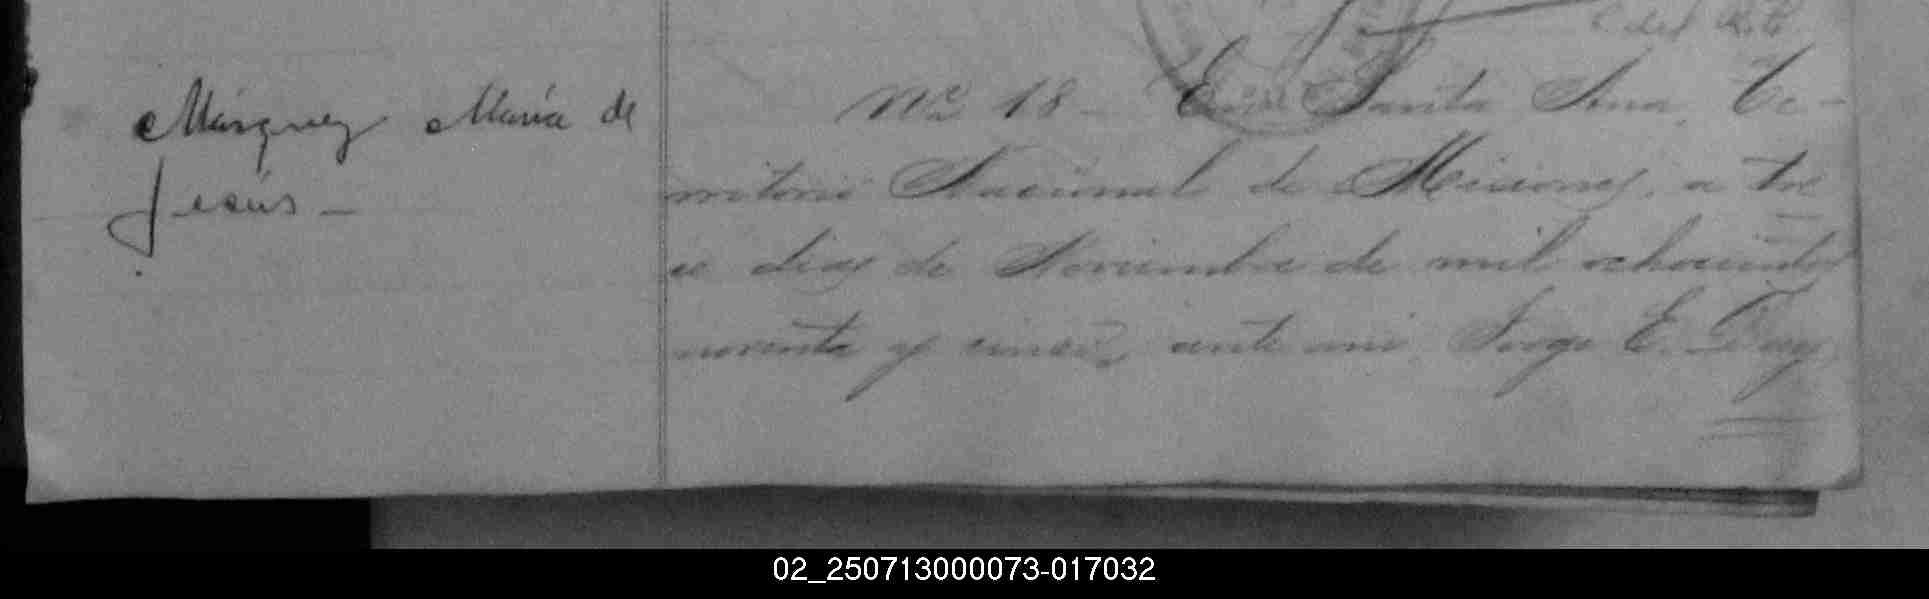 Márquez María de
Jesús -
Nº 18 - En Santa Ana, Te-
rritorio Nacional de Misiones, a tre
ce dias de Noviembre de mil ochocientos
noventa y cinco, ante mi, Jorge E.
02_250713000073-017032